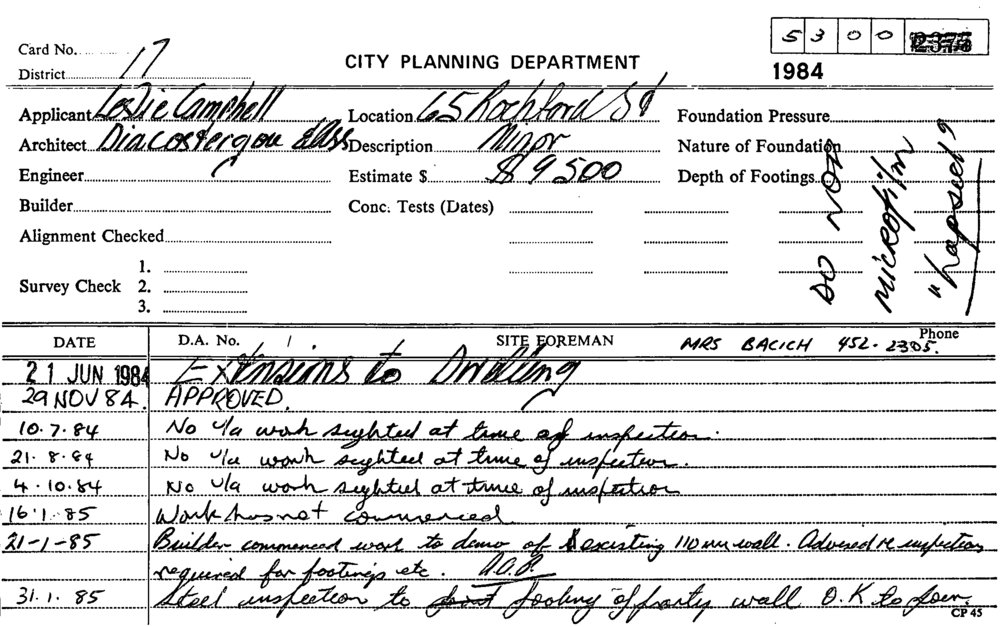 5 3 0 0 2373
Card No. 17
District
CITY PLANNING DEPARTMENT
1984
Applicant Leslie Campbell Location 65 Rochford St Foundation Pressure
Architect Diacostergou & Ass Description Minor Nature of Foundation
Engineer Estimate $ $9500 Depth of Footings
Builder Conc. Tests (Dates)
Alignment Checked
DO NOT
microfilm
"Lapsed"
1.
Survey Check 2.
3.
DATE D.A. No. 1 SITE FOREMAN MRS BACICH Phone 452-2305.
21 JUN 1984 Extensions to Dwelling
29 NOV 84. APPROVED.
10.7.84 No u/a work sighted at time of inspection.
21.8.84 No u/a work sighted at time of inspection.
4.10.84 No u/a work sighted at time of inspection
16.1.85 Work has not commenced
21-1-85 Builder commenced work to demo of existing 110mm wall. Advised re inspection
required for footings etc.
31.1.85 Steel inspection to footing of party wall O.K to pour.
CP 45